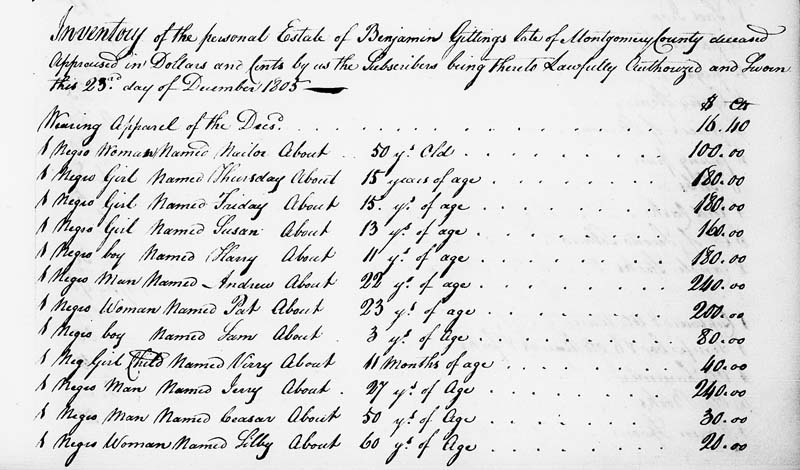 Inventory of the personal Estate of Benjamin Gittings late of Montgomery County deceased
Appraised in Dollars and Cents by us the Subscribers being thereto Lawfully Authorized and Sworn
this 23rd day of December 1805
$ Cts
Wearing Apparel of the Decd. 16.40
1 Negro Woman Named About 50 yrs Old 100.00
1 Negro Girl Named Thursday About 15 years of age 180.00
1 Negro Girl Named Friday About 15 yrs of age 180.00
1 Negro Girl Named Susan About 13 yrs of age 160.00
1 Negro boy Named Harry About 11 yrs of age 180.00
1 Negro Man Named Andrew About 22 yrs of age 240.00
1 Negro Woman Named Pat About 23 yrs of age 200.00
1 Negro boy Named Sam About 3 yrs of Age 80.00
1 Neg Girl Child Named About 11 Months of age 40.00
1 Negro Man Named Jerry About 27 yrs of Age 240.00
1 Negro Man Named Ceasar About 50 yrs of Age 30.00
1 Negro Woman Named About 60 yrs of Age 20.00